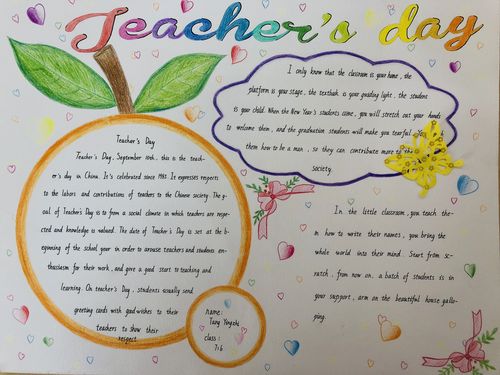 Teacher's day
I only know that the classroom is your home, the
platform is your stage, the textbook is your guiding light, the student
is your child. When the New Year's students come, you will stretch out your hands
to welcome them, and the graduation students will make you tearful. You
them how to be a man, so they can contribute more to the
society.
Teacher's Day
Teacher's Day, September 10th, this is the teach-
er's day in China. It's celebrated since 1985. It expresses respects
to the labors and contributions of teachers to the Chinese society. The g-
oal of Teacher's Day is to form a social climate in which teachers are respe-
cted and knowledge is valued. The date of Teacher's Day is set at the b-
eginning of the school year in order to arouse teachers and students en-
thusiasm for their work, and give a good start to teaching and
learning. On teacher's Day, students usually send
greeting cards with good wishes to their
teachers to show their
respect.
In the little classroom, you teach the-
m how to write their names, you bring the
whole world into their mind. Start from sc-
ratch, from now on, a batch of students is in
your support, arm on the beautiful house gallo-
ping.
name:
Tang Yingzhi
class:
716